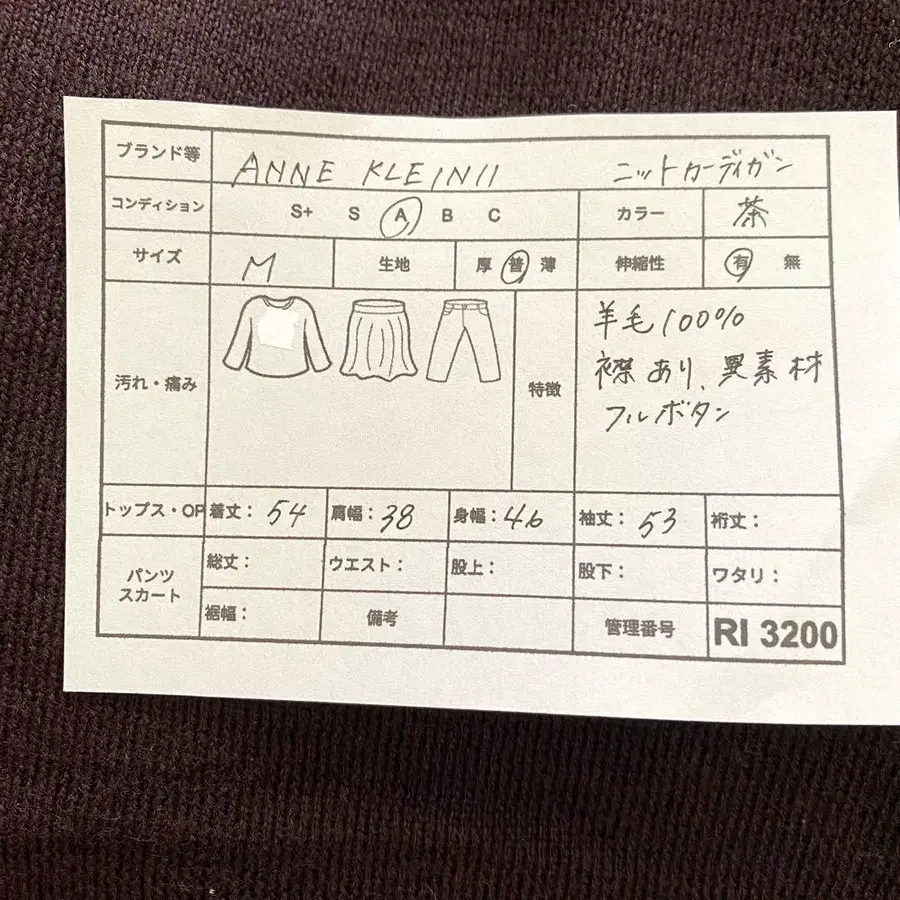 ブランド等 ANNE KLEIN II ニットカーディガン
コンディション S+ S A B C カラー 茶
サイズ M 生地 厚 普 薄 伸縮性 有 無
汚れ・痛み 特徴 羊毛100%
襟あり、異素材
フルボタン
トップス・OP 着丈：54 肩幅：38 身幅：46 袖丈：53 裄丈：
パンツ スカート 総丈： ウエスト： 股上： 股下： ワタリ：
裾幅： 備考 管理番号 RI 3200